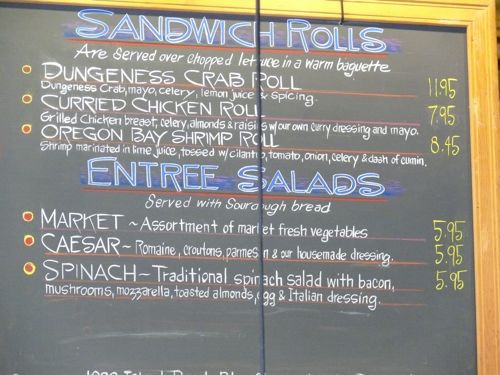 SANDWICH ROLLS
Are Served over chopped lettuce in a warm baguette
DUNGENESS CRAB ROLL 11.95
Dungeness Crab, mayo, celery, lemon juice & spicing.
CURRIED CHICKEN ROLL 7.95
Grilled Chicken breast, celery, almonds & raisins w/our own curry dressing and mayo.
OREGON BAY SHRIMP ROLL 8.45
Shrimp marinated in lime juice, tossed w/cilantro, tomato, onion, celery & dash of cumin.
ENTREE SALADS
Served with Sourdough bread
MARKET ~ Assortment of market fresh vegetables 5.95
CAESAR ~ Romaine, croutons, parmesan & our housemade dressing. 5.95
SPINACH ~ Traditional spinach salad with bacon, 5.95
mushrooms, mozzarella, toasted almonds, egg & Italian dressing.